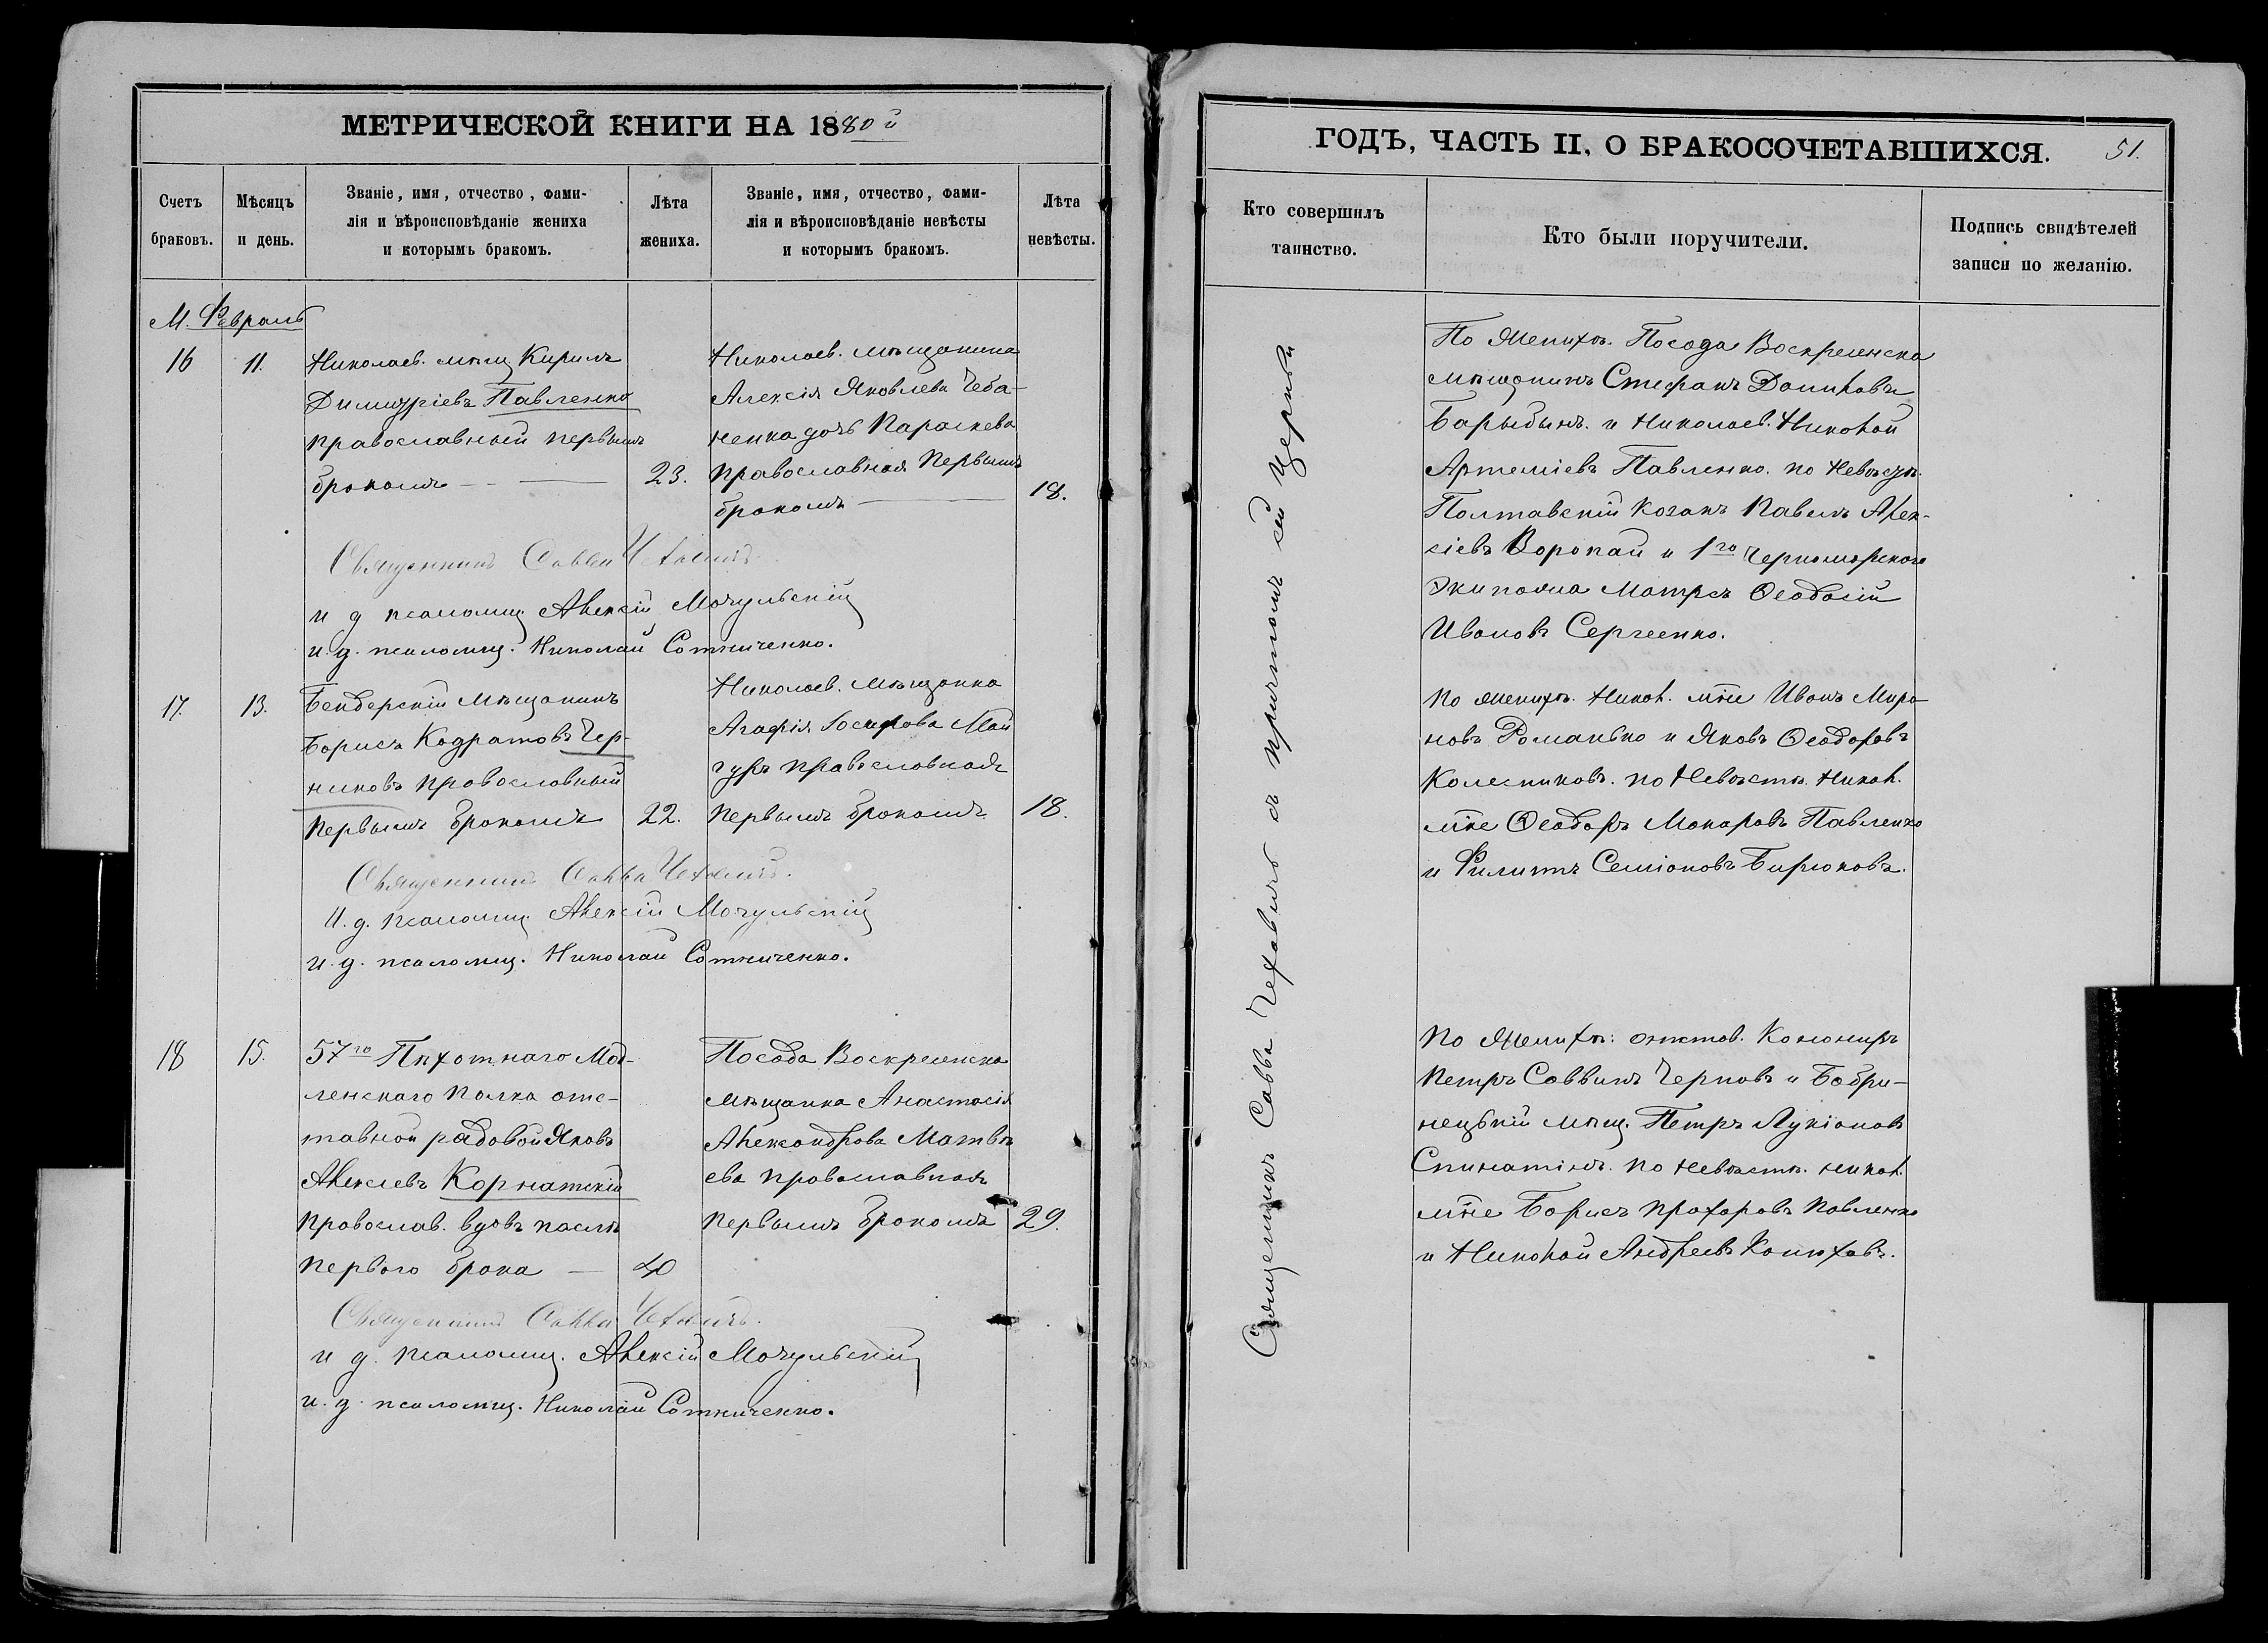 МЕТРИЧЕСКОЙ КНИГИ НА 1880й
Счетъ браковъ.
Мѣсяцъ и день.
Званіе, имя, отчество, фами-
лія и вѣроисповѣданіе жениха
и которымъ бракомъ.
Лѣта жениха.
Званіе, имя, отчество, фами-
лія и вѣроисповѣданіе невѣсты
и которымъ бракомъ.
Лѣта невѣсты.
М. Февраль
16
11.
Николаев. мѣщ. Кирилъ
Димитріевъ Павленко
православный первымъ
бракомъ
23.
Николаев. мѣщанина
Алексія Яковлева Чеба-
ненка дочь Параскева
православная первымъ
бракомъ
18.
Священникъ Савва Чеховичъ
и д псаломщ Алексій Мочульскій
и. д. псаломщ. Николай Сотниченко.
17.
13.
Бендерскій Мѣщанинъ
Борисъ Кодратовъ Чер-
никовъ православный
первымъ бракомъ
22.
Николаев. мѣщанка
Агафія Іосифова Май
гуръ православная
первымъ бракомъ
18.
Священникъ Савва Чеховичъ.
И. д. псаломщ. Алексій Мочульскій
и. д. псаломщ. Николай Сотниченко.
18
15.
57го Пѣхотнаго Мод-
ленскаго полка отс-
тавной рядовой Яковъ
Алексѣевъ Корнатскій
православ. вдовъ послѣ
перваго брака
40
Посада Воскресенска
мѣщанка Анастасія
Александрова Матвѣ
ева православная
первымъ бракомъ
29.
Священникъ Савва Чеховичъ.
и д. псаломщ. Алексій Мочульскій
и. д. псаломщ. Николай Сотниченко.
ГОДЪ, ЧАСТЬ II, О БРАКОСОЧЕТАВШИХСЯ.
51.
Кто совершилъ
таинство.
Кто были поручители.
Подпись свидѣтелей
записи по желанію.
Священникъ Савва Чеховичъ съ причтомъ сей Церкви
По Женихѣ. Посада Воскресенска
мѣщанинъ Стефанъ
Барыбинъ. и Николаев. Николай
Артеміевъ Павленко. по Невѣстѣ.
Полтавскій козакъ Павелъ Алек-
сіевъ Воропай и 1го Черноморскаго
Экипажа Матросъ Ѳеодосій
Ивановъ Сергеенко.
По женихѣ. Никол. мѣне Иванъ Миро
новъ Романько и Яковъ Ѳеодоровъ
Колесниковъ. по Невѣстѣ. Никол.
мѣне Ѳеодоръ Макаровъ Павленко
и Филиппъ Семіоновъ Бирюковъ.
По Женихѣ: отстав. Канониръ
Петръ Саввинъ Черновъ и Бобри-
нецкій мѣщ. Петръ Лукіановъ
по Невѣстѣ. никол.
мѣне Борисъ Прохоровъ Павленко
и Николай Андреевъ Конюховъ.